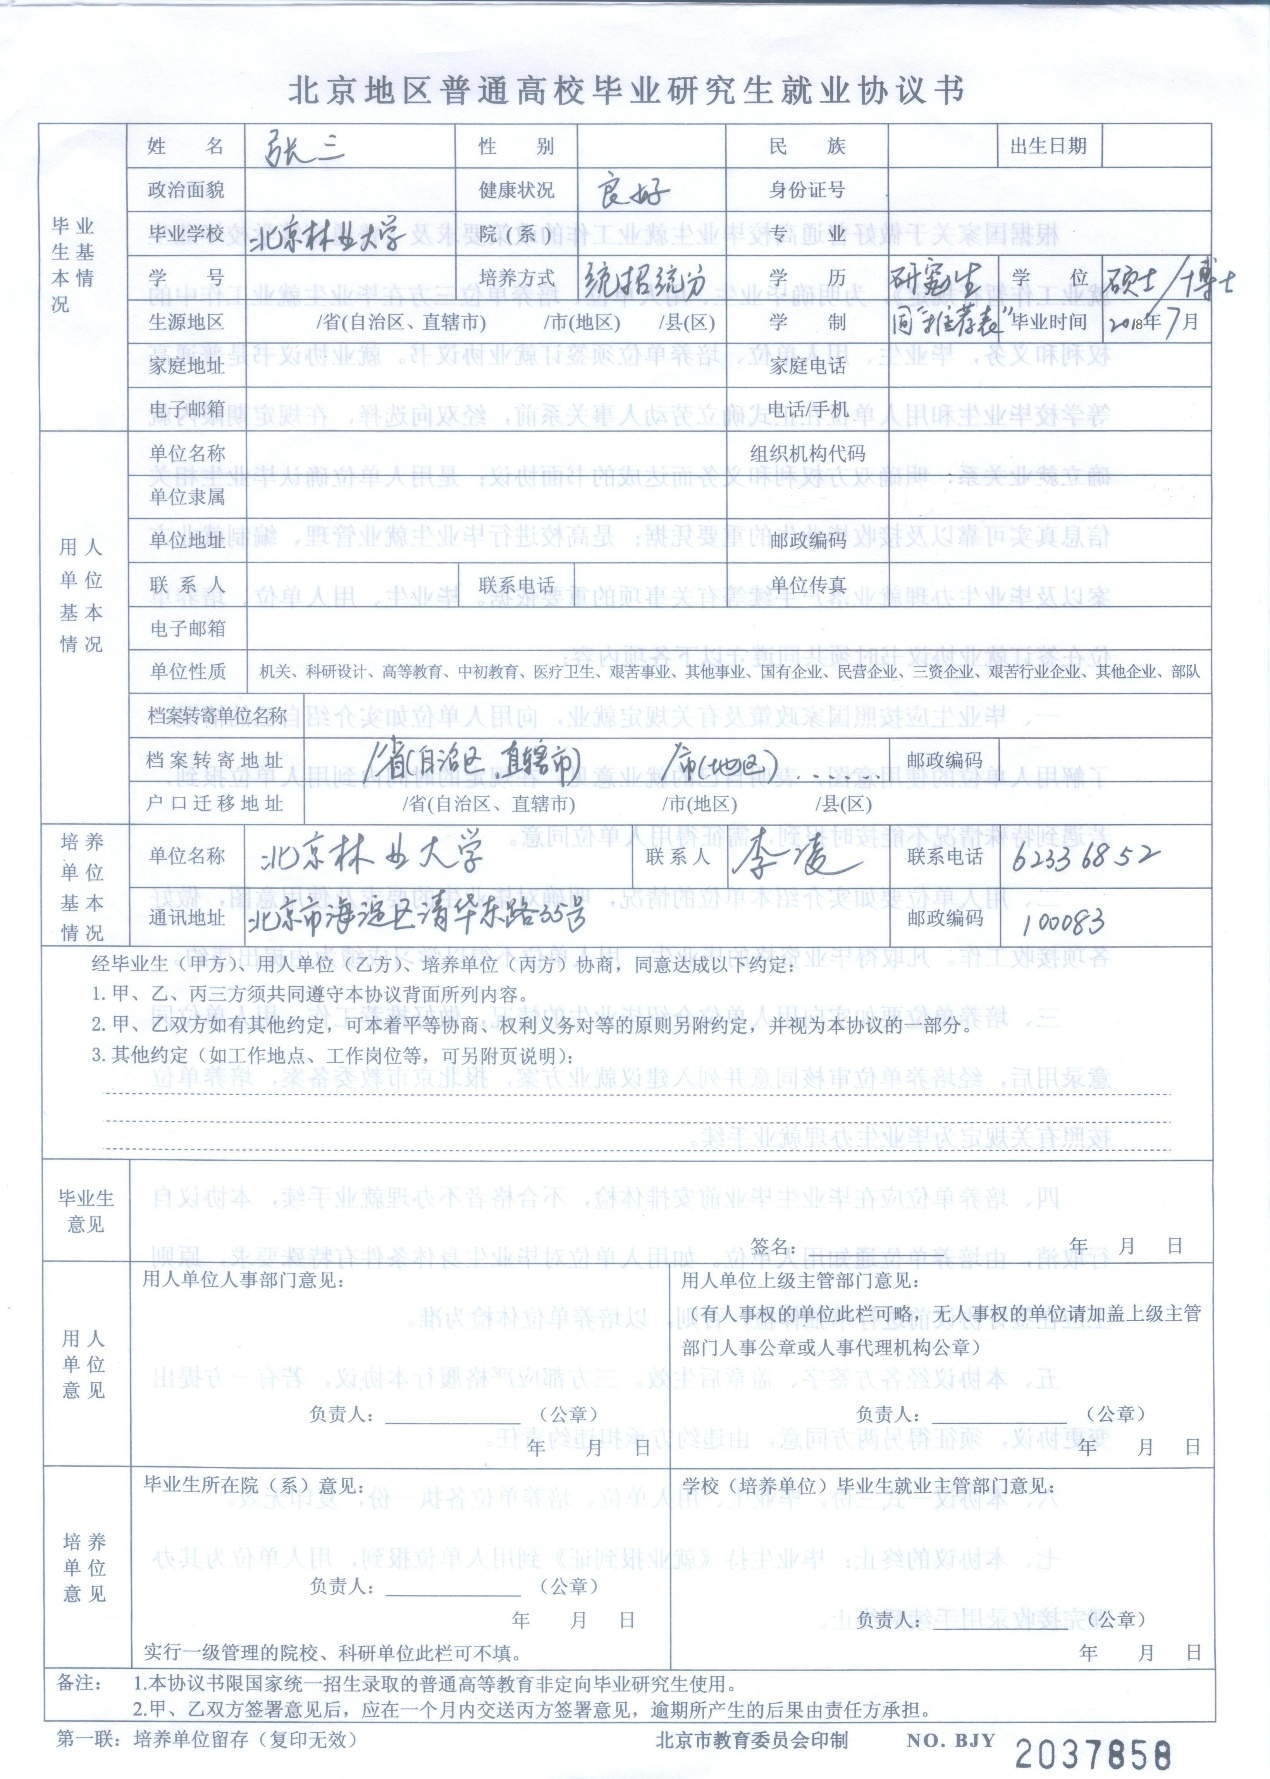 北京地区普通高校毕业研究生就业协议书
毕业生基本情况
姓 名 张三 性 别 民 族 出生日期
政治面貌 健康状况 良好 身份证号
毕业学校 北京林业大学 院(系) 专 业
学 号 培养方式 统招统分 学 历 研究生 学 位 硕士/博士
生源地区 /省(自治区、直辖市) /市(地区) /县(区) 学 制 同"推荐表" 毕业时间 2018年7月
家庭地址 家庭电话
电子邮箱 电话/手机
用人单位基本情况
单位名称 组织机构代码
单位隶属
单位地址 邮政编码
联系人 联系电话 单位传真
电子邮箱
单位性质 机关、科研设计、高等教育、中初教育、医疗卫生、艰苦事业、其他事业、国有企业、民营企业、三资企业、艰苦行业企业、其他企业、部队
档案转寄单位名称
档案转寄地址 /省(自治区、直辖市) /市(地区)........ 邮政编码
户口迁移地址 /省(自治区、直辖市) /市(地区) /县(区)
培养单位基本情况
单位名称 北京林业大学 联系人 李凌 联系电话 62336852
通讯地址 北京市海淀区清华东路35号 邮政编码 100083
经毕业生（甲方）、用人单位（乙方）、培养单位（丙方）协商，同意达成以下约定：
1. 甲、乙、丙三方须共同遵守本协议背面所列内容。
2. 甲、乙双方如有其他约定，可本着平等协商、权利义务对等的原则另附约定，并视为本协议的一部分。
3. 其他约定（如工作地点、工作岗位等，可另附页说明）：
毕业生意见
签名： 年 月 日
用人单位意见
用人单位人事部门意见：
负责人：＿＿＿＿＿＿（公章）
年 月 日
用人单位上级主管部门意见：
（有人事权的单位此栏可略，无人事权的单位请加盖上级主管
部门人事公章或人事代理机构公章）
负责人：＿＿＿＿＿＿（公章）
年 月 日
培养单位意见
毕业生所在院（系）意见：
负责人：＿＿＿＿＿＿（公章）
年 月 日
实行一级管理的院校、科研单位此栏可不填。
学校（培养单位）毕业生就业主管部门意见：
负责人：＿＿＿＿＿＿（公章）
年 月 日
备注： 1.本协议书限国家统一招生录取的普通高等教育非定向毕业研究生使用。
2.甲、乙双方签署意见后，应在一个月内交送丙方签署意见，逾期所产生的后果由责任方承担。
第一联：培养单位留存（复印无效） 北京市教育委员会印制 NO. BJY 2037858